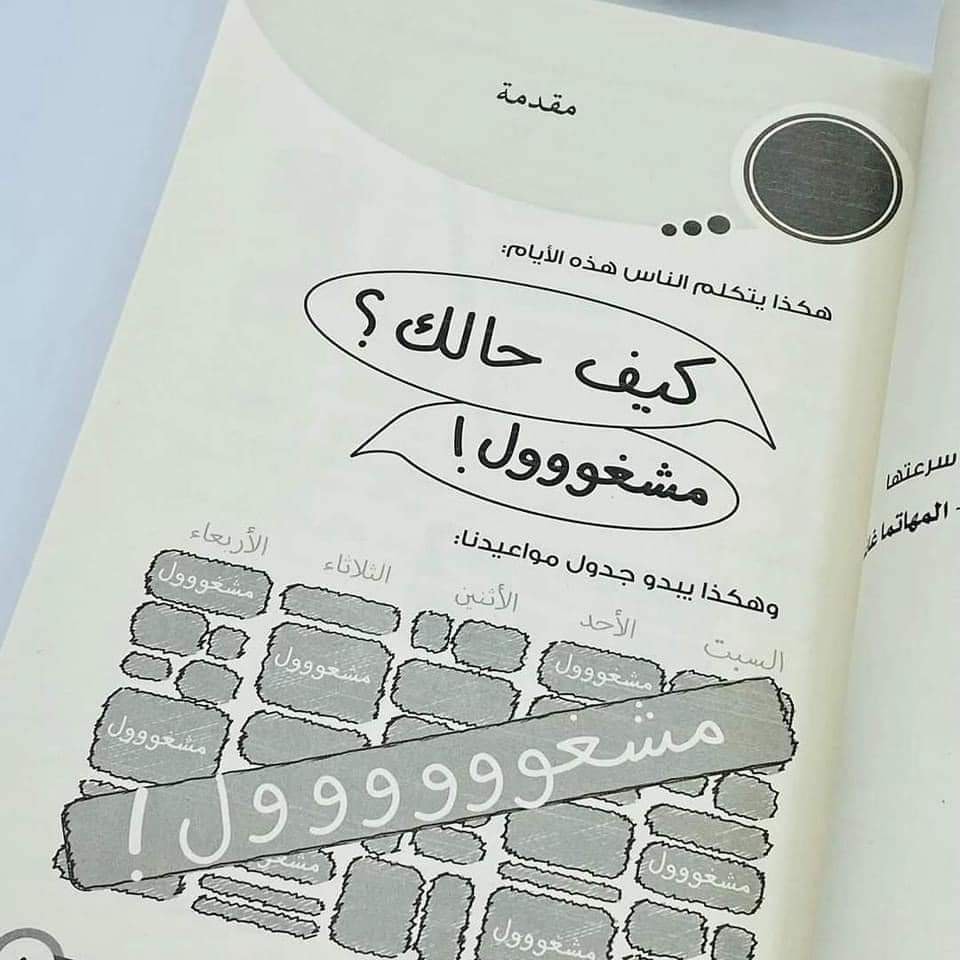 مقدمة
هكذا يتكلم الناس هذه الأيام:
كيف حالك؟
مشغوووول!
وهكذا يبدو جدول مواعيدنا:
السبت
الأحد
الأثنين
الثلاثاء
الأربعاء
مشغوووول
مشغوووول
مشغوووول
مشغوووول
مشغووووووول!
مشغوووول
مشغوووول
سرعتها
- المهاتما